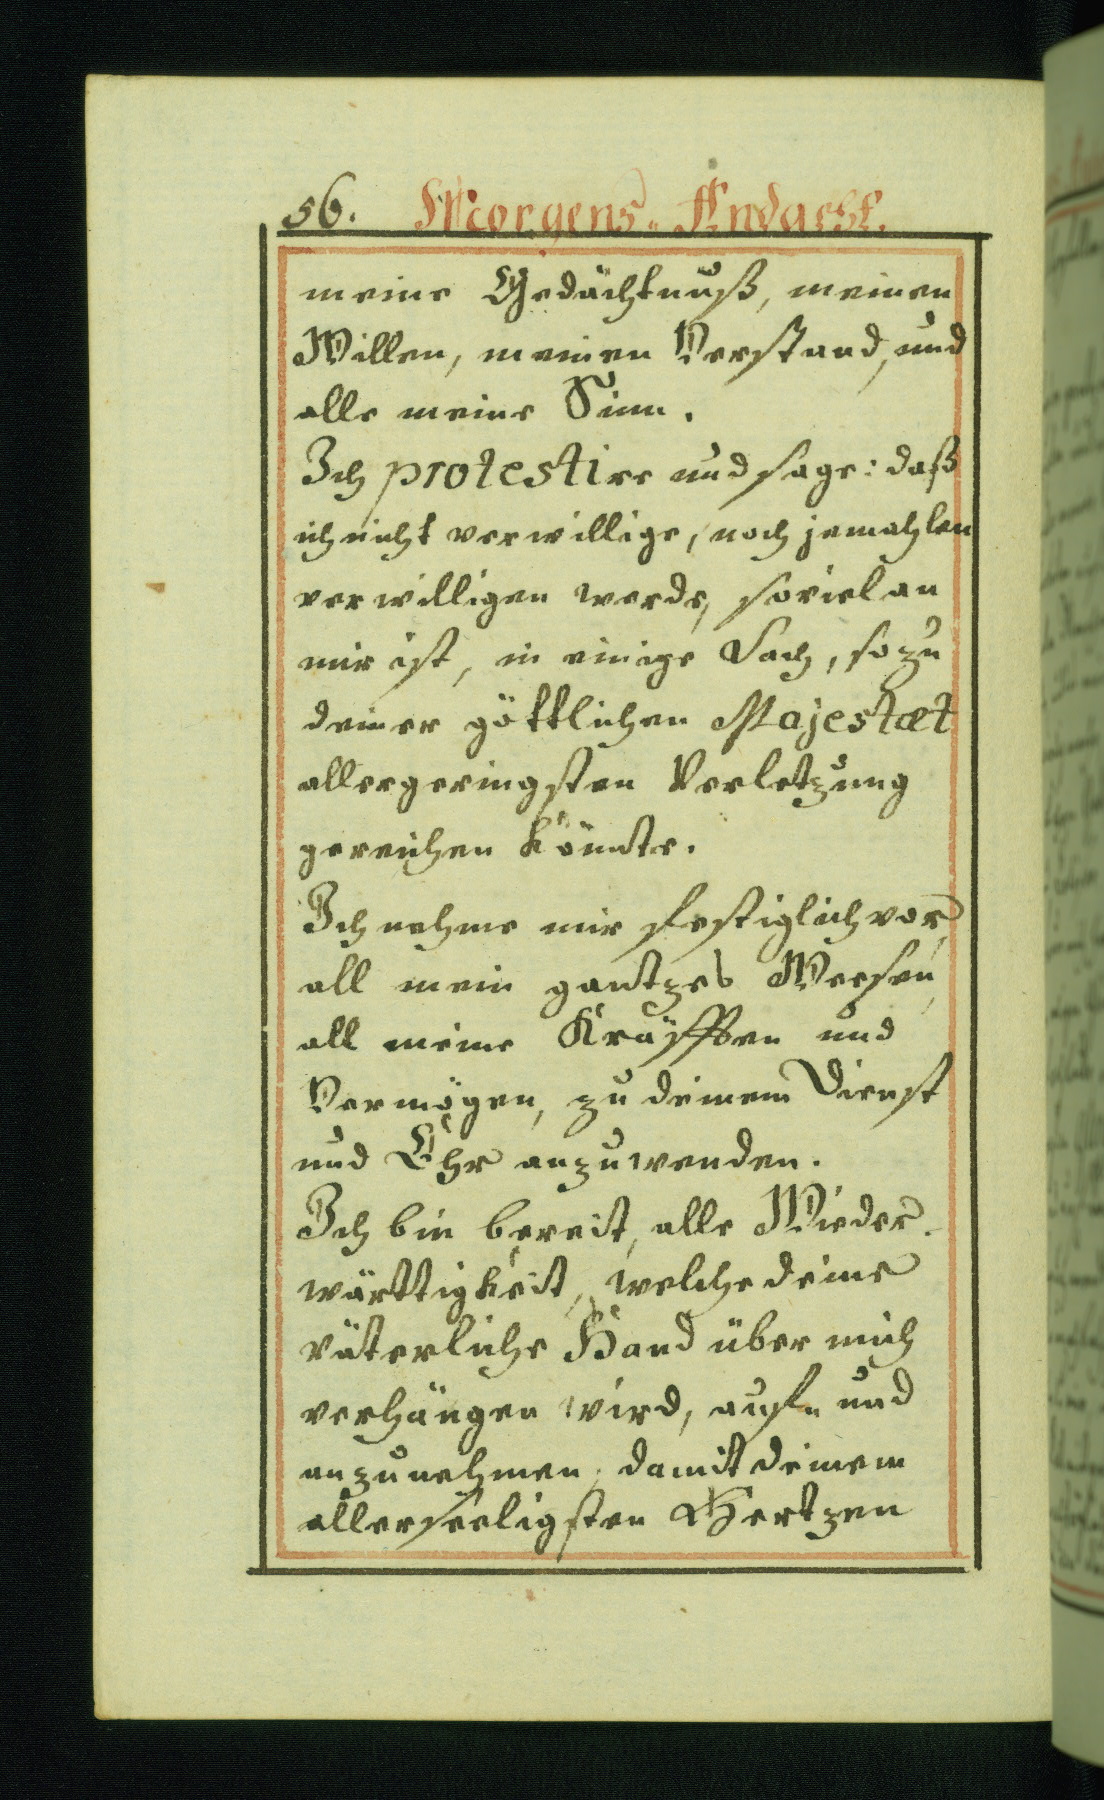 56. Morgens-Andacht.
meine Gedächtnuß, meinen
Willen, meinen Verstand, und
alle meine Sinn.
Ich protestire und sage: daß
ich nicht verwillige, noch jemahlen
verwilligen werde, soviel an
mir ist, in einige Sach, so zu
deiner göttlichen Majestæt
allergeringsten Verletzung
gereichen könnte.
Ich nehme mir festiglich vor,
all mein gantzes Weesen,
all meine Kräfften und
Vermögen, zu deinem Dienst
und Ehr anzuwenden.
Ich bin bereit, alle Wieder-
wärttigkeit, welche deine
väterliche Hand über mich
verhängen wird, auf- und
anzunehmen, damit deinem
allerseeligsten Hertzen